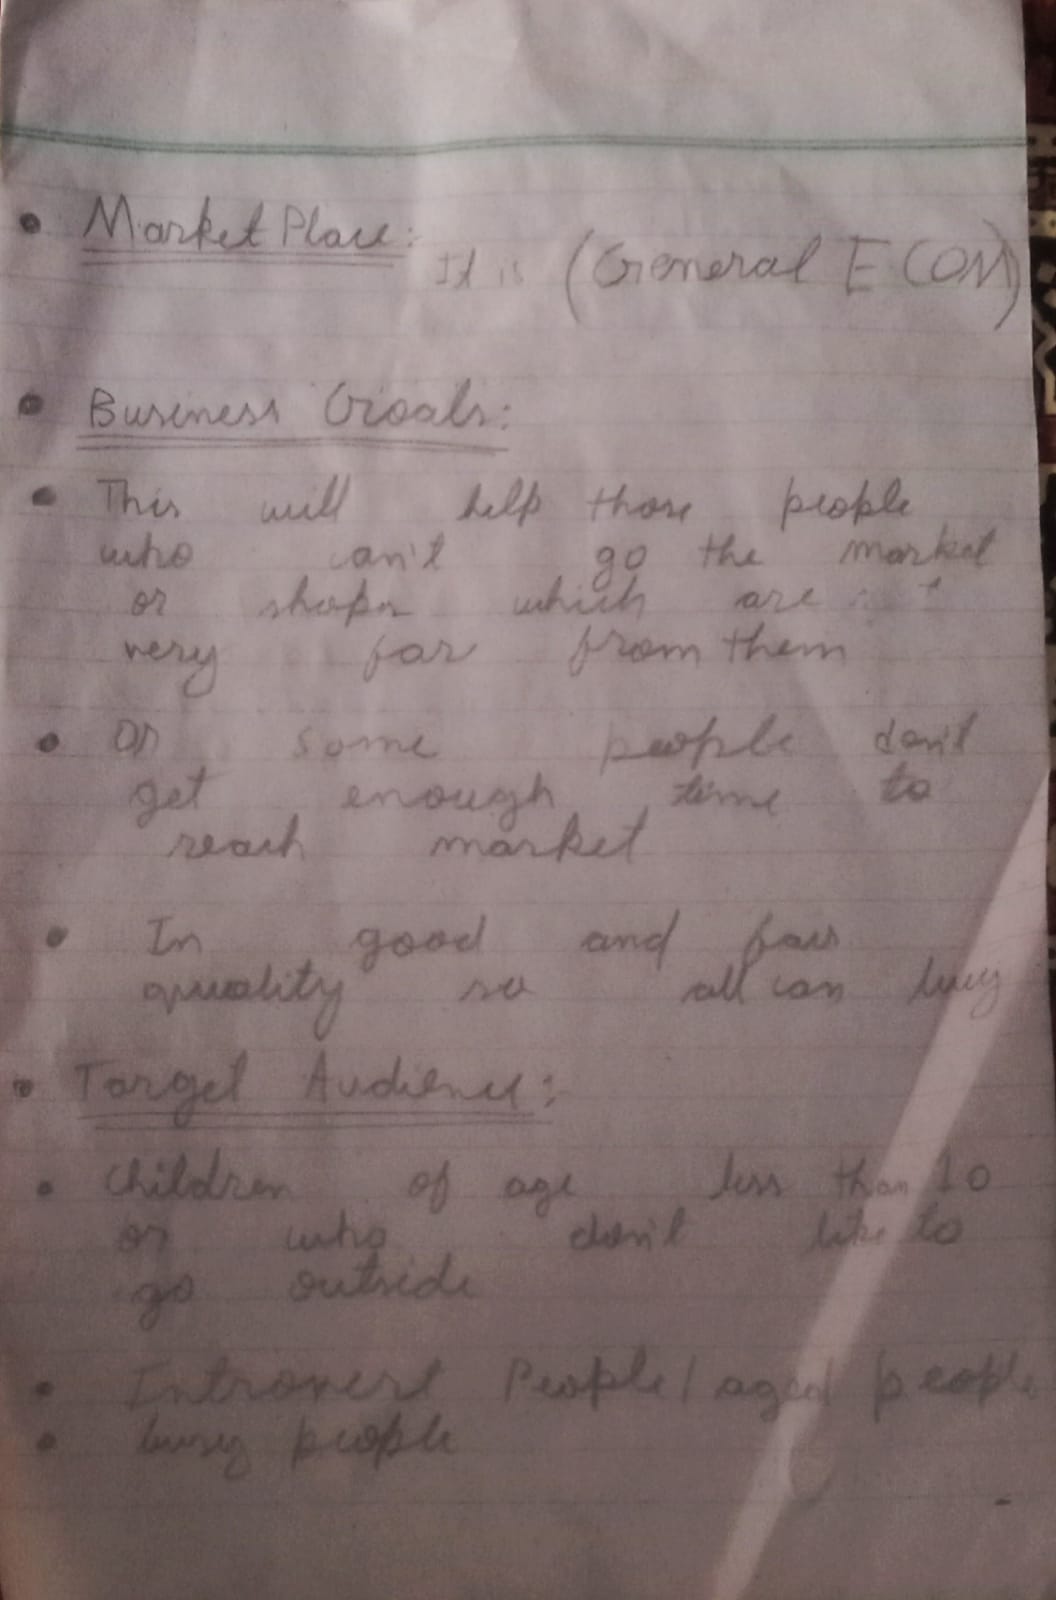 • Market Place:
It is (General E COM)
• Business Goals:
• This will help those people
who can't go the market
or shops which are
very far from them
• Or some people don't
get enough time to
reach market
• In good and fair
quality so all can buy
• Target Audience:
• Children of age less than 10
or who don't like to
go outside
• Introvert People / aged people
• busy people